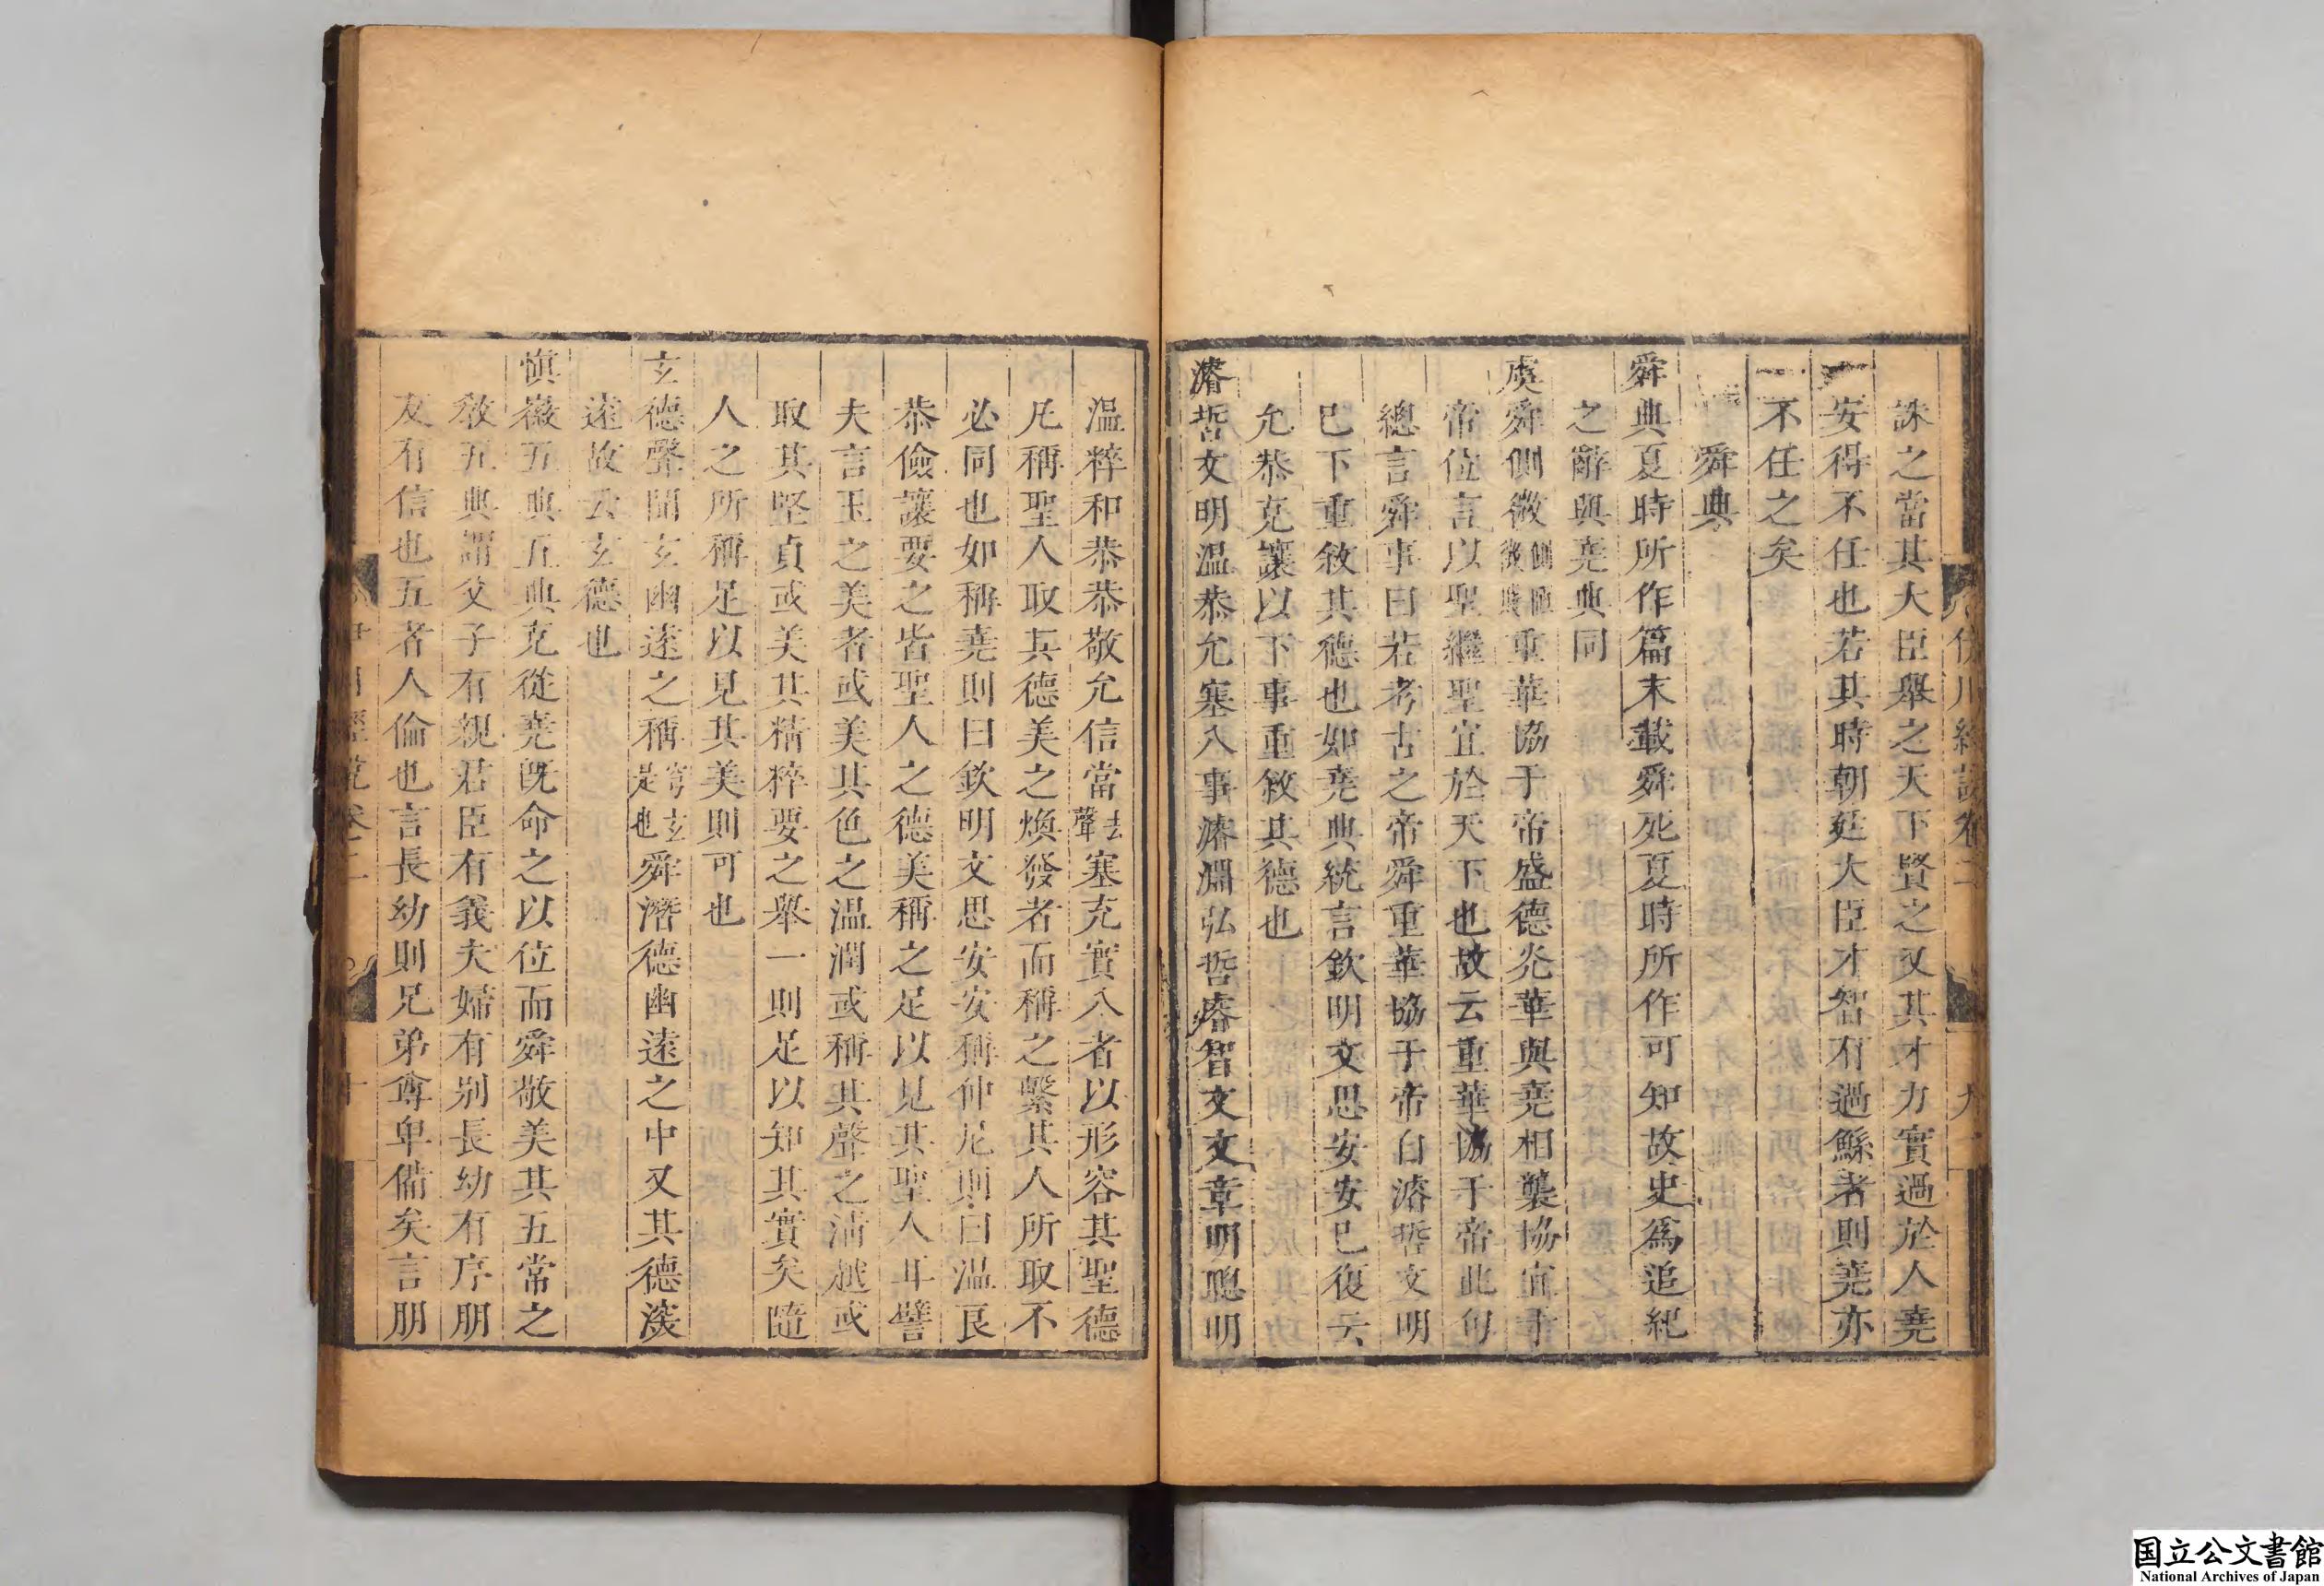 伊川經説卷二 九
誅之當其大臣舉之天下賢之又其才力實過於人堯
安得不任也若其時朝廷大臣才智有過鯀者則堯亦
不任之矣
舜典
舜典夏時所作篇末載舜死夏時所作可知故史爲追紀
之辭與堯典同
虞舜側微側陋微賤重華協于帝盛德光華與堯相襲協宜于
帝位言以聖繼聖宜於天下也故云重華協于帝此句
總言舜事曰若考古之帝舜重華協于帝自濬哲文明
已下重敘其德也如堯典統言欽明文思安安已復云
允恭克讓以下事重敘其德也
濬哲文明温恭允塞八事濬淵弘哲睿智文文章明聰明
温粹和恭恭敬允信當去聲塞充實八者以形容其聖德
凡稱聖人取其德美之煥發者而稱之繫其人所取不
必同也如稱堯則曰欽明文思安安稱仲尼則曰温良
恭儉讓要之皆聖人之德美稱之足以見其聖人耳譬
夫言玉之美者或美其色之温潤或稱其聲之清越或
取其堅貞或美其精粹要之舉一則足以知其實矣隨
人之所稱足以見其美則可也
玄德聲聞玄幽遠之稱穹玄是也舜潛德幽遠之中又其德深
遠故云玄德也
慎徽五典五典克從堯既命之以位而舜敬美其五常之
敎五典謂父子有親君臣有義夫婦有别長幼有序朋
友有信也五者人倫也言長幼則兄弟尊卑備矣言朋
伊川經説卷二 十
国立公文書館
National Archives of Japan